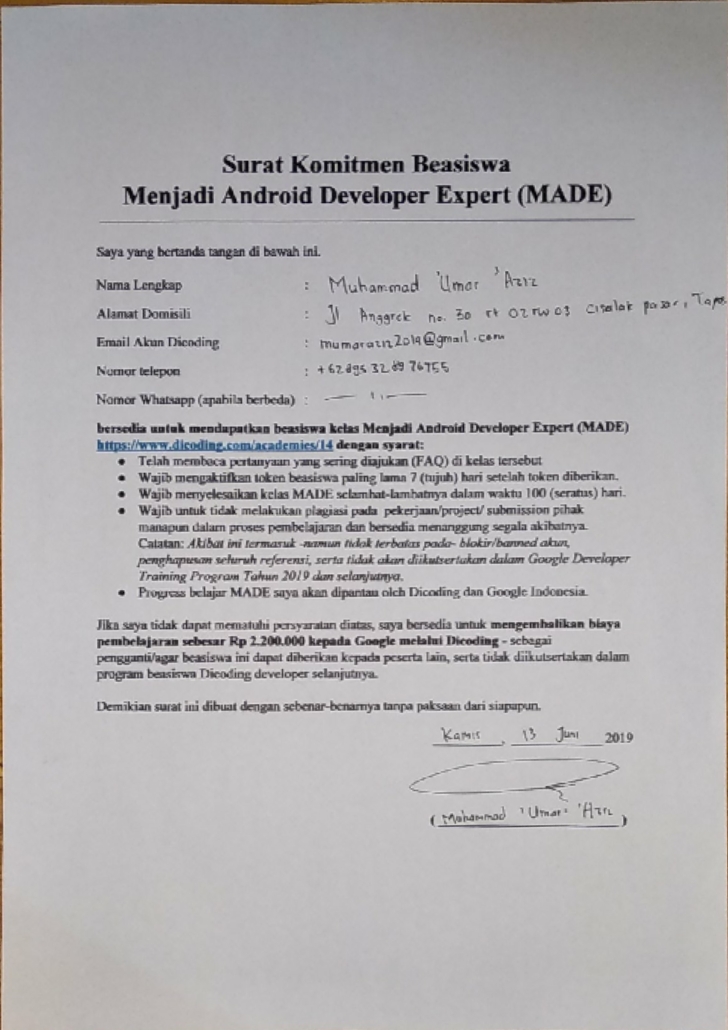 Surat Komitmen Beasiswa
Menjadi Android Developer Expert (MADE)
Saya yang bertanda tangan di bawah ini.
Nama Lengkap : Muhammad 'Umar 'Aziz
Alamat Domisili : Jl Anggrek no. 30 rt 02 rw 03 Cisalak pasar,
Email Akun Dicoding : mumaraziz2019@gmail.com
Nomor telepon :
Nomor Whatsapp (apabila berbeda) : — 11 —
bersedia untuk mendapatkan beasiswa kelas Menjadi Android Developer Expert (MADE)
https://www.dicoding.com/academies/14 dengan syarat:
• Telah membaca pertanyaan yang sering diajukan (FAQ) di kelas tersebut
• Wajib mengaktifkan token beasiswa paling lama 7 (tujuh) hari setelah token diberikan.
• Wajib menyelesaikan kelas MADE selambat-lambatnya dalam waktu 100 (seratus) hari.
• Wajib untuk tidak melakukan plagiasi pada pekerjaan/project/ submission pihak
manapun dalam proses pembelajaran dan bersedia menanggung segala akibatnya.
Catatan: Akibat ini termasuk -namun tidak terbatas pada- blokir/banned akun,
penghapusan seluruh referensi, serta tidak akan diikutsertakan dalam Google Developer
Training Program Tahun 2019 dan selanjutnya.
• Progress belajar MADE saya akan dipantau oleh Dicoding dan Google Indonesia.
Jika saya tidak dapat mematuhi persyaratan diatas, saya bersedia untuk mengembalikan biaya
pembelajaran sebesar Rp 2.200.000 kepada Google melalui Dicoding - sebagai
pengganti/agar beasiswa ini dapat diberikan kepada peserta lain, serta tidak diikutsertakan dalam
program beasiswa Dicoding developer selanjutnya.
Demikian surat ini dibuat dengan sebenar-benarnya tanpa paksaan dari siapapun.
Kamis, 13 Juni 2019
(Muhammad 'Umar 'Aziz)